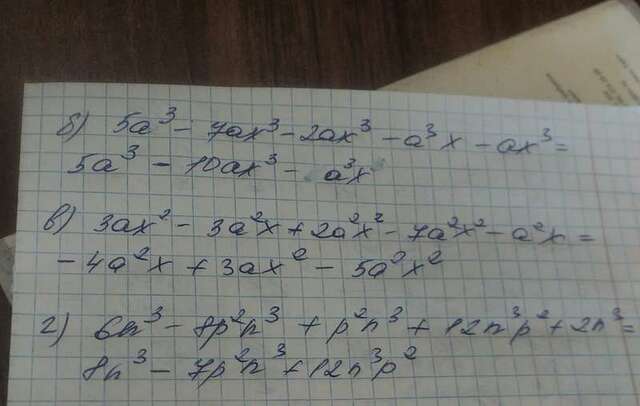 б) 5a³ - 7ax³ - 2ax³ - a³x - ax³ =
5a³ - 10ax³ - a³x
в) 3ax² - 3a²x + 2a²x² - 7a²x² - a²x =
- 4a²x + 3ax² - 5a²x²
г) 6n³ - 8p²n³ + p²n³ + 12n³p² + 2n³ =
8n³ - 7p²n³ + 12n³p²